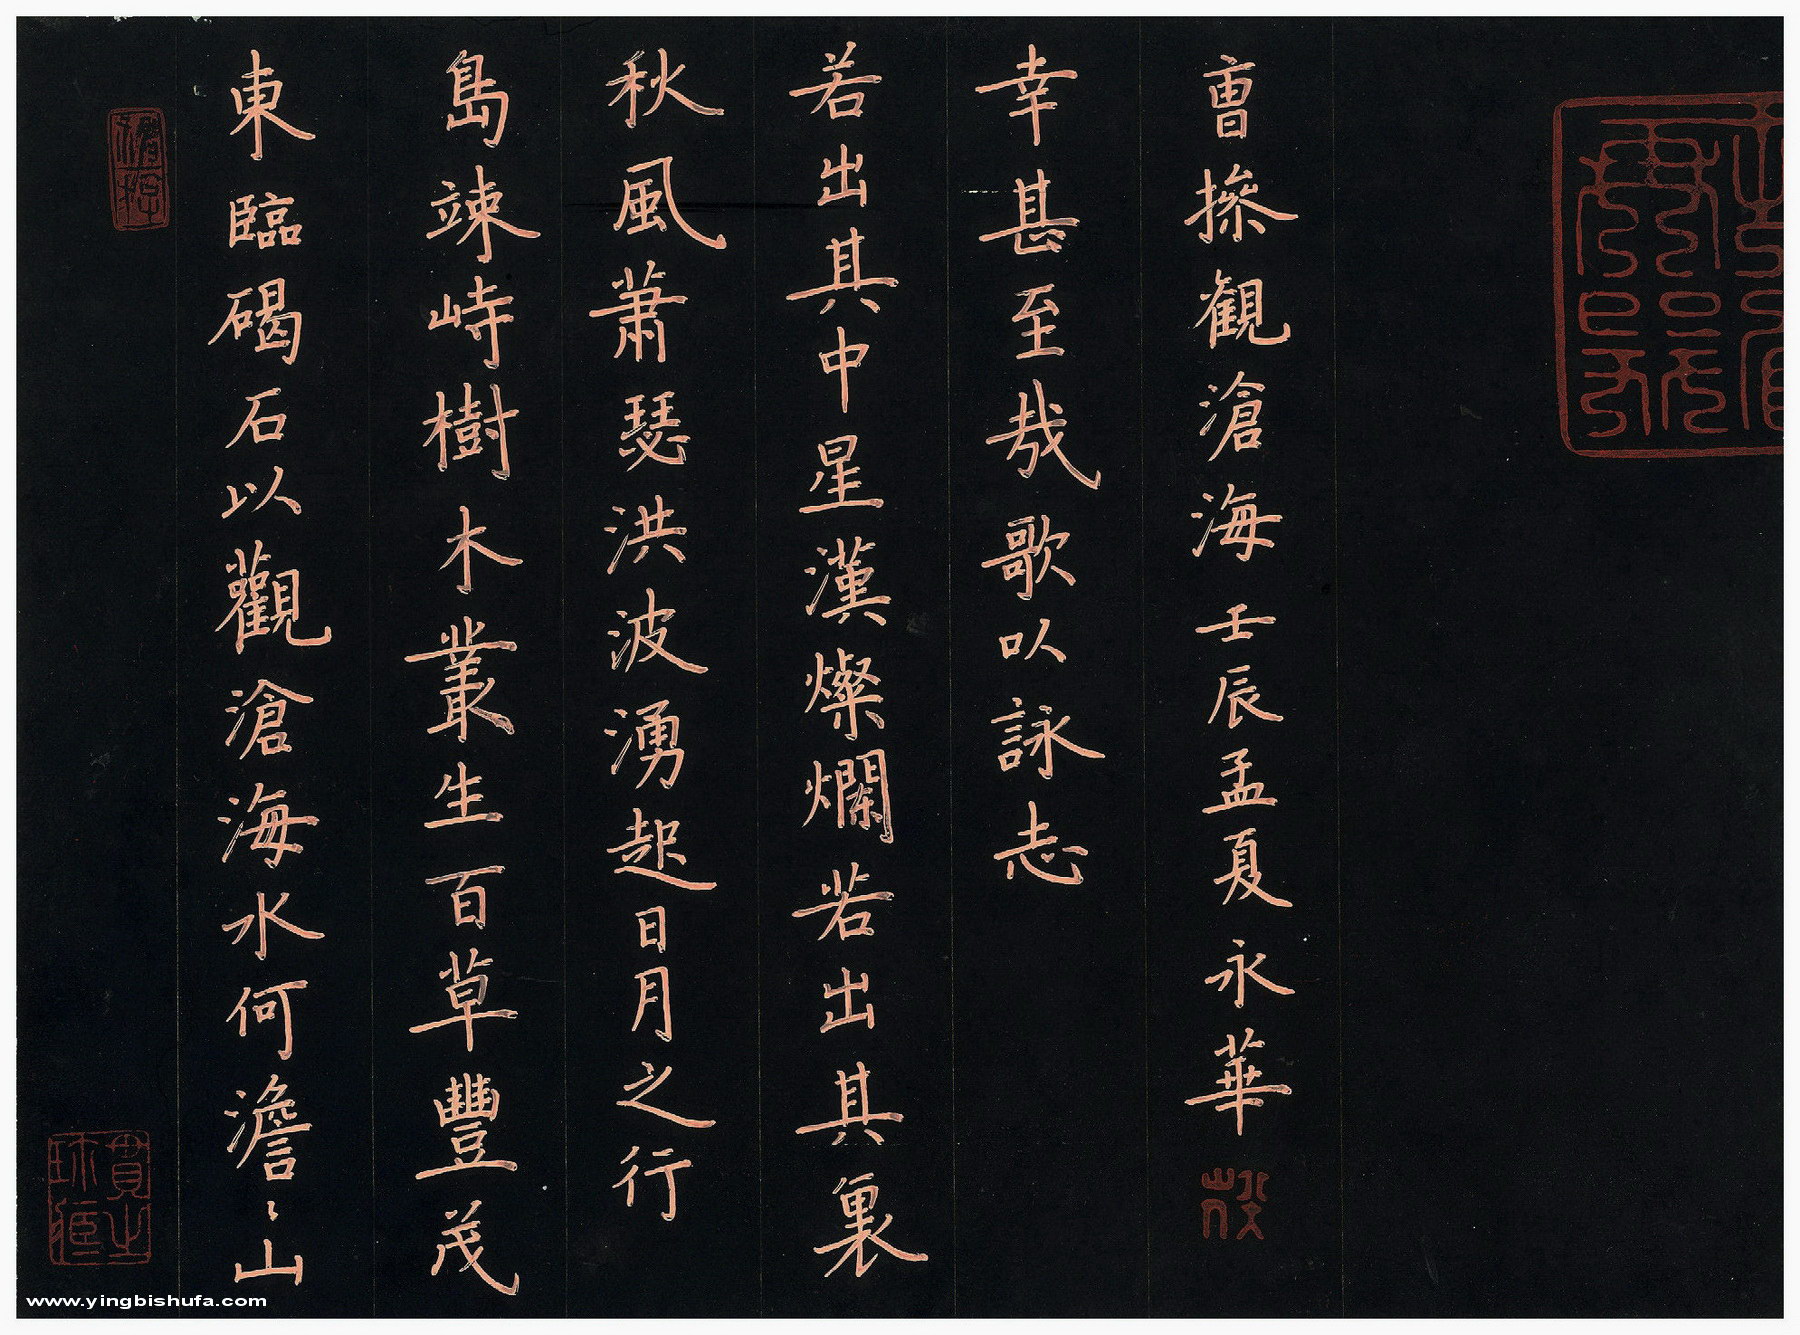 東臨碣石以觀滄海水何澹〻山
島竦峙樹木叢生百草豐茂
秋風蕭瑟洪波湧起日月之行
若出其中星漢燦爛若出其裏
幸甚至哉歌以詠志
曹操観滄海壬辰孟夏永華
www.yingbishufa.com